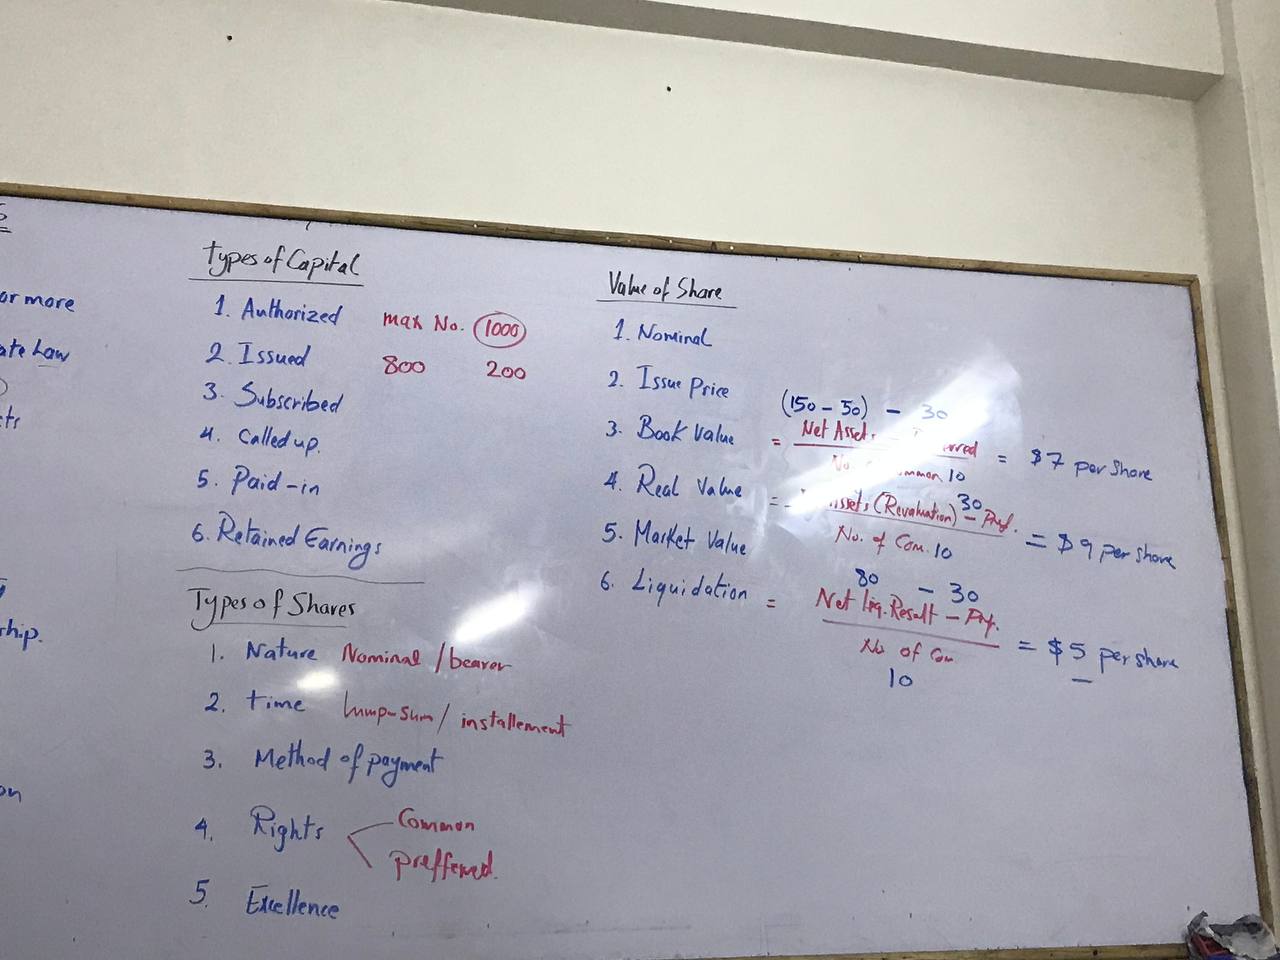 or more
ate Law
cts
ship.
on
Types of Capital
1. Authorized max No. 1000
2. Issued 800 200
3. Subscribed
4. Called up.
5. Paid-in
6. Retained Earnings
Types of Shares
1. Nature Nominal / bearer
2. time lump-sum / installement
3. Method of payment
4. Rights Common
preffered.
5. Excellence
Value of Share
1. Nominal
2. Issue Price
(150 - 50) - 30
3. Book Value = Net Assets - erred = $7 per share
No. mmon 10
30
4. Real Value = Assets (Revaluation) - Pref. = $9 per share
No. of Com. 10
5. Market Value
80 - 30
6. Liquidation = Net liq. Result - Pref. = $5 per share
No of Com
10